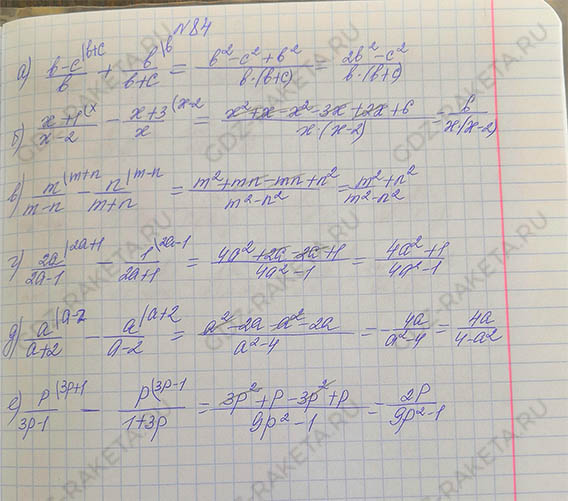 №84
а) (в-с)/в |в+с + в/(в+с) |в = (в²-с²+в²)/(в·(в+с)) = (2в²-с²)/(в·(в+с))
б) (х+1)/(х-2) |х - (х+3)/х |х-2 = (х²+х-х²-3х+2х+6)/(х·(х-2)) = 6/(х(х-2))
в) m/(m-n) |m+n - n/(m+n) |m-n = (m²+mn-mn+n²)/(m²-n²) = (m²+n²)/(m²-n²)
г) 2a/(2a-1) |2a+1 - 1/(2a+1) |2a-1 = (4a²+2a-2a+1)/(4a²-1) = (4a²+1)/(4a²-1)
д) a/(a+2) |a-2 - a/(a-2) |a+2 = (a²-2a-a²-2a)/(a²-4) = 4a/(a²-4) = 4a/(4-a²)
е) p/(3p-1) |3p+1 - p/(1+3p) |3p-1 = (3p²+p-3p²+p)/(9p²-1) = 2p/(9p²-1)
GDZ-RAKETA.RU